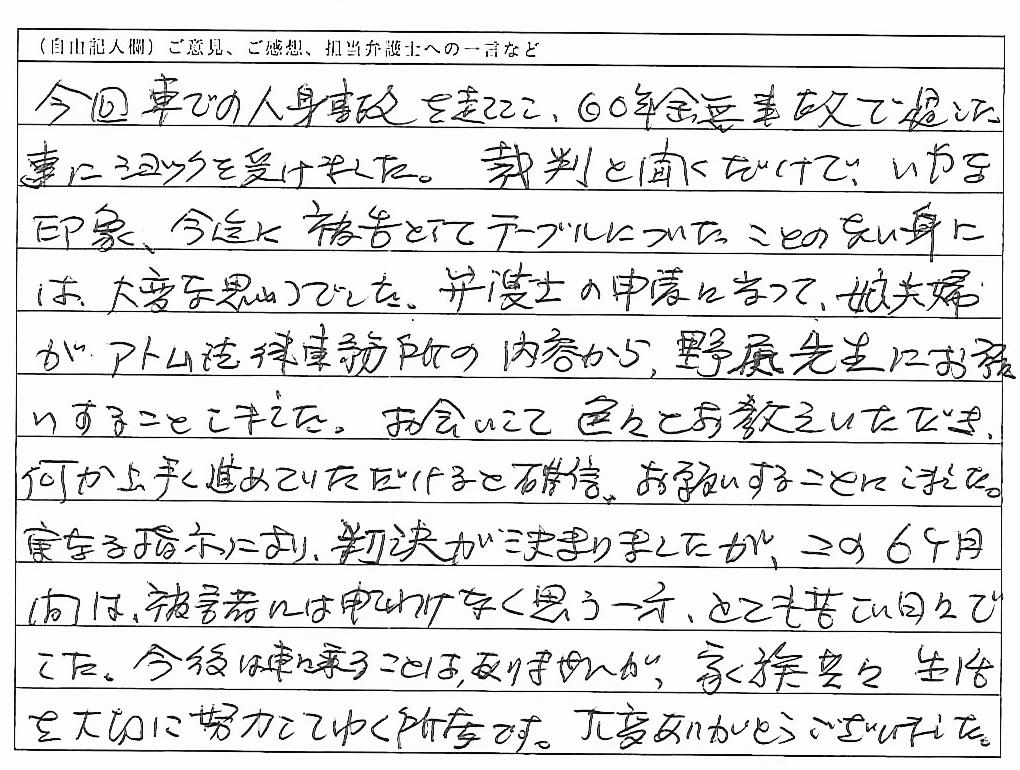 (自由記入欄)ご意見、ご感想、担当弁護士への一言など
今回車での人身事故を起こし、60年余無事故で過した
事にショックを受けました。裁判と聞くだけで、いやな
印象、今迄に被告としてテーブルについたことのない身に
は、大変な思いつでした。弁護士の申請に当って、娘夫婦
がアトム法律事務所の内容から、野尻先生にお願
いすることしました。お会いして色々とお教えいただき、
何か上手く進めていただけると確信、お願いすることにしました。
確なる指示により、判決が決まりましたが、この6ヶ月
間は、被害者には申しわけなく思う一方、とても苦しい日々で
した。今後は車に乗ることは、ありませんが、家族共々生活
を大切に努力してゆく所存です。大変ありがとうございました。